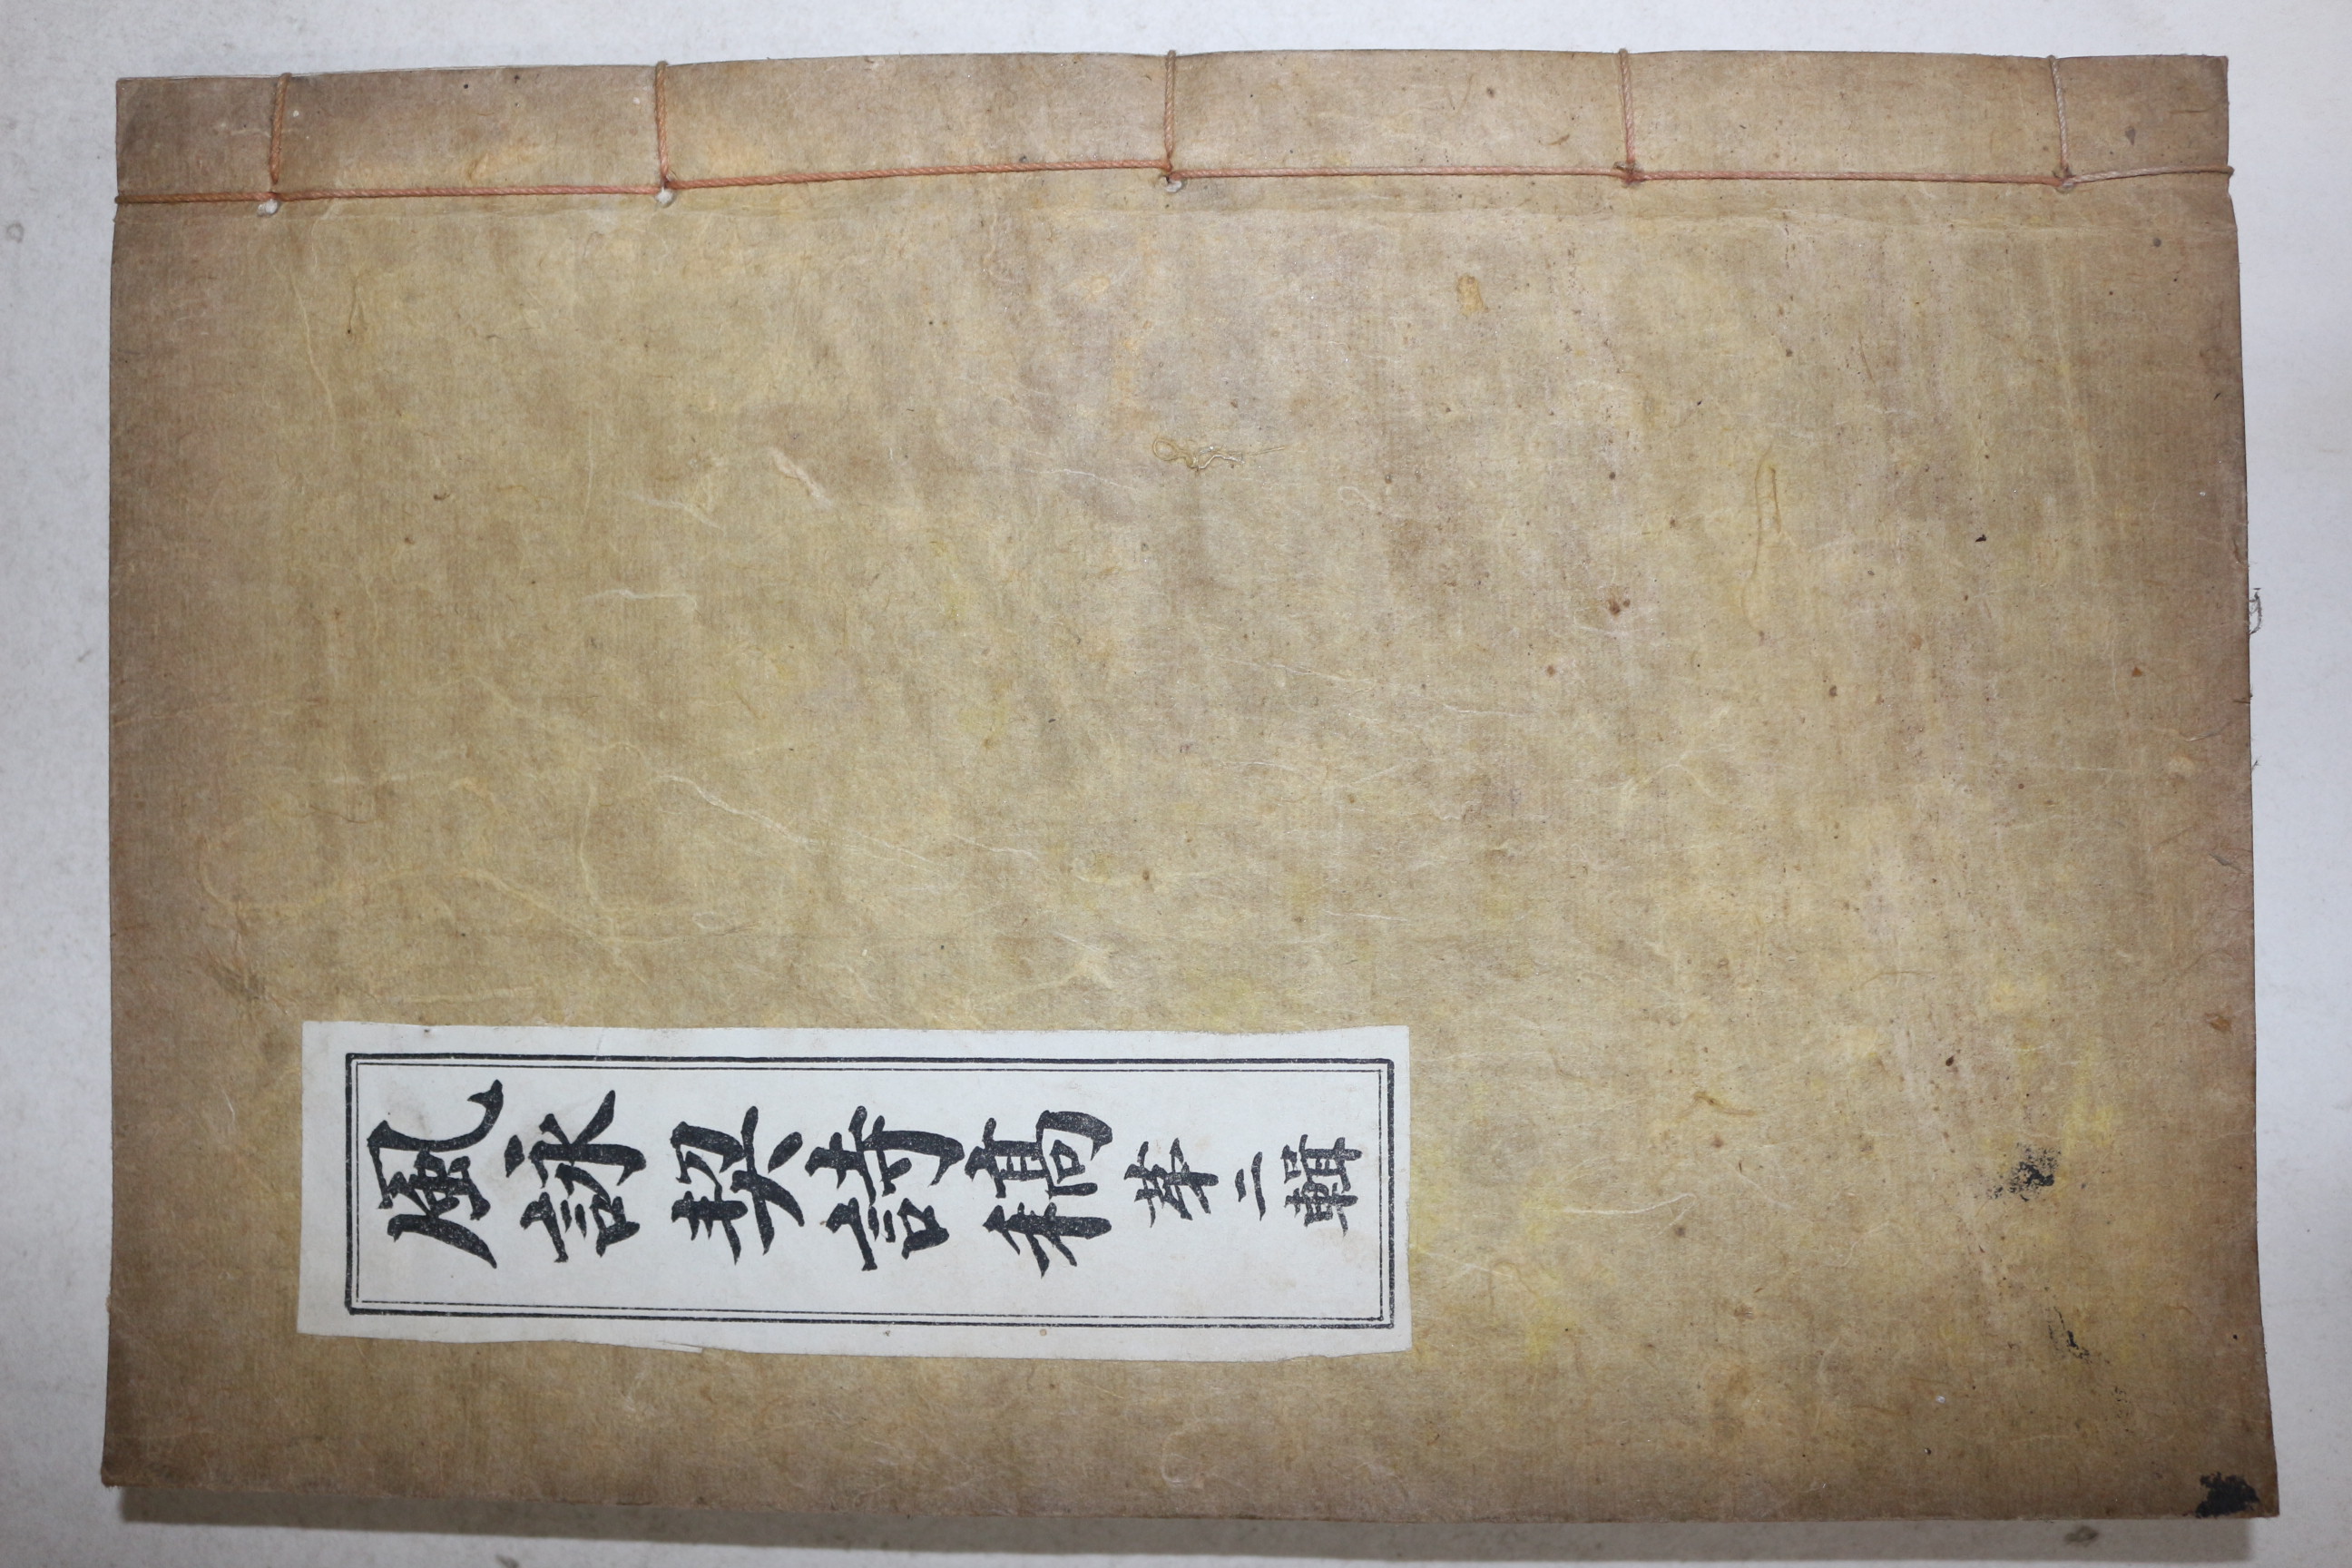 風詠契詩稿 第二輯